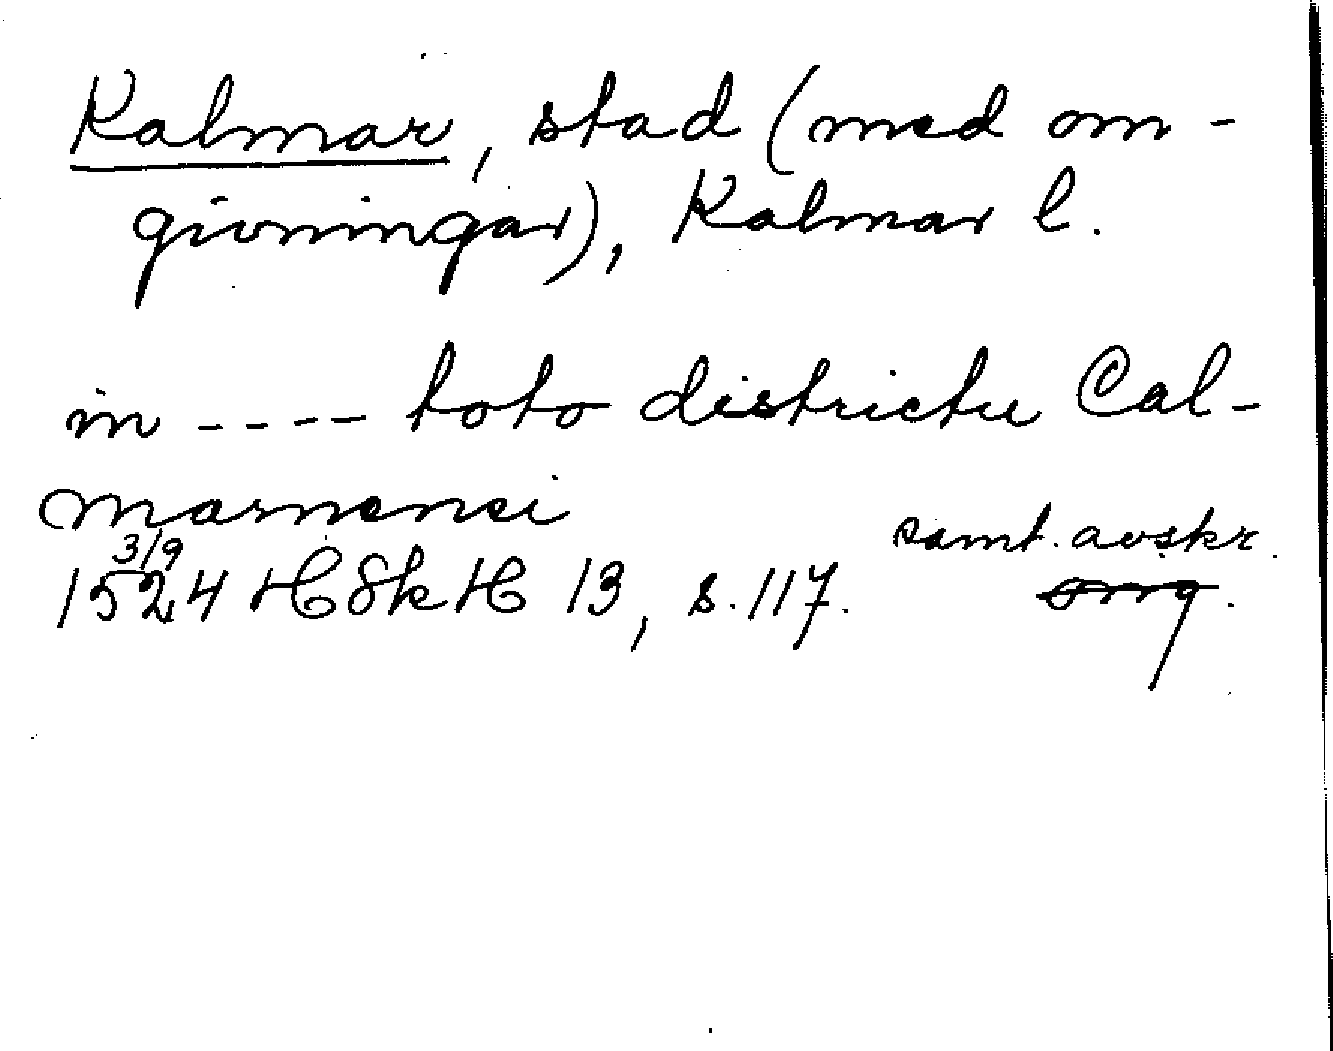 Kalmar, stad (med om-
givningar), Kalmar l.
in ---- toto districtu Cal-
marnensi
samt. avskr.
3/9
1524 HSkH 13, s. 117. orig.